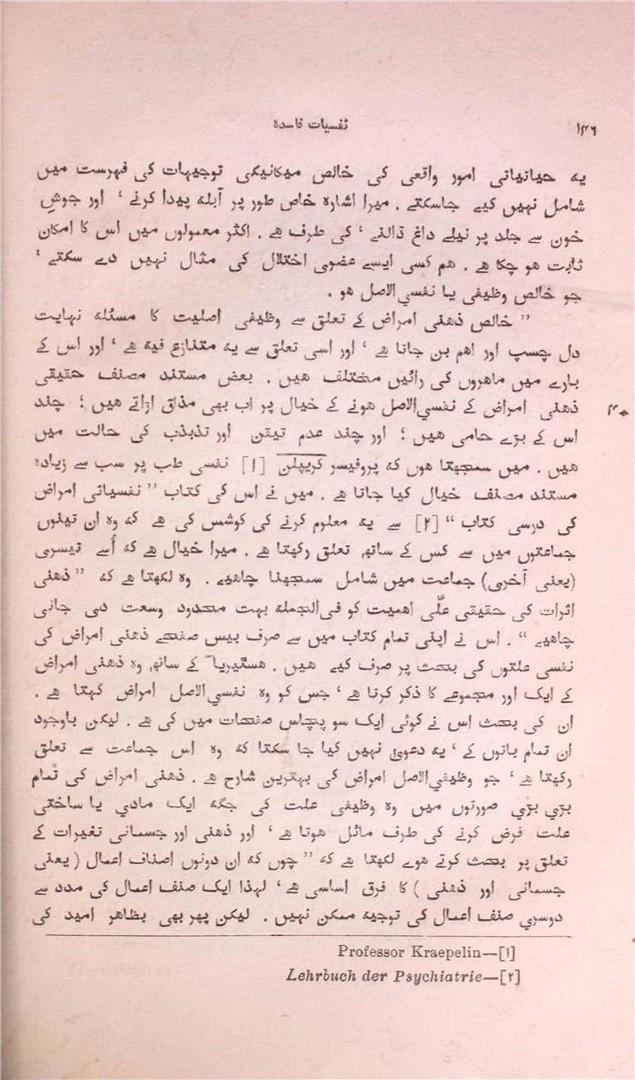 ۱۴۶
نفسیات فاسدہ
یہ حیاتیاتی امور واقعی کی خالص میکانیکی توجیہات کی فہرست میں
شامل نہیں کیے جاسکتے . میرا اشارہ خاص طور پر آبلہ پیدا کرنے ‘ اور جوشِ
خون سے جلد پر نیلے داغ ڈالنے ‘ کی طرف ہے . اکثر معمولوں میں اس کا امکان
ثابت ہو چکا ہے . ہم کسی ایسے عضوی اختلال کی مثال نہیں دے سکتے ‘
جو خالص وظیفی یا نفسی‌الاصل ہو .
” خالص ذہنی امراض کے تعلق سے وظیفی اصلیت کا مسئلہ نہایت
دل چسپ اور اہم بن جاتا ہے ‘ اور اسی تعلق سے یہ متنازع فیہ ہے ‘ اور اس کے
بارے میں ماہروں کی رائیں مختلف ہیں . بعض مستند مصنف حقیقی
ذہنی امراض کے نفسی‌الاصل ہونے کے خیال پر اب بھی مذاق اڑاتے ہیں ؛ چند
اس کے بڑے حامی ہیں ؛ اور چند عدم تیقن اور تذبذب کی حالت میں
ہیں . میں سمجھتا ہوں کہ پروفیسر کریپلن [۱] نفسی طب پر سب سے زیادہ
مستند مصنف خیال کیا جاتا ہے . میں نے اس کی کتاب ” نفسیاتی امراض
کی درسی کتاب “ [۲] سے یہ معلوم کرنے کی کوشس کی ہے کہ وہ ان تینوں
جماعتوں میں سے کس کے ساتھ تعلق رکھتا ہے . میرا خیال ہے کہ اُسے تیسری
(یعنی آخری) جماعت میں شامل سمجھنا چاہیے . وہ لکھتا ہے کہ ” ذہنی
اثرات کی حقیقی علّی اہمیت کو فی‌الجملہ بہت محدود وسعت دی جانی
چاہیے “ . اس نے اپنی تمام کتاب میں سے صرف بیس صفحے ذہنی امراض کی
نفسی علتوں کی بحث پر صرف کیے ہیں . ہستیریا کے ساتھ وہ ذہنی امراض
کے ایک اور مجموعے کا ذکر کرتا ہے ‘ جس کو وہ نفسی‌الاصل امراض کہتا ہے .
ان کی بحث اس نے کوئی ایک سو پچاس صفحات میں کی ہے . لیکن باوجود
ان تمام باتوں کے ‘ یہ دعویٰ نہیں کیا جا سکتا کہ وہ اس جماعت سے تعلق
رکھتا ہے ‘ جو وظیفی‌الاصل امراض کی بہترین شارح ہے . ذہنی امراض کی تمام
بڑی بڑی صورتوں میں وہ وظیفی علت کی جگہ ایک مادی یا ساختی
علت فرض کرنے کی طرف مائل ہوتا ہے ‘ اور ذہنی اور جسمانی تغیرات کے
تعلق پر بحث کرتے ہوے لکھتا ہے کہ ” چوں کہ ان دونوں اصناف اعمال ( یعنی
جسمانی اور ذہنی ) کا فرق اساسی ہے ‘ لہذا ایک صنف اعمال کی مدد سے
دوسری صنف اعمال کی توجیہ ممکن نہیں . لیکن پھر بھی بظاہر امید کی
Professor Kraepelin—[۱]
Lehrbuch der Psychiatrie—[۲]